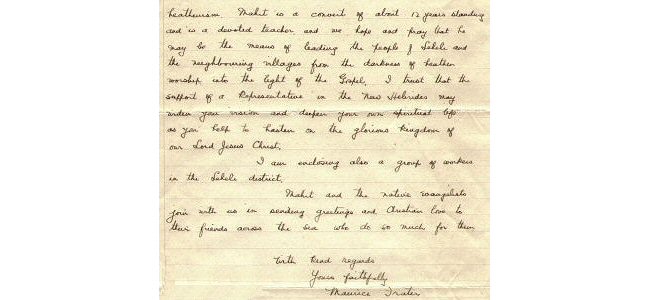 heathenism. Mahit is a convert of about 12 years standing
and is a devoted teacher and we hope and pray that he
may be the means of leading the people of Lelele and
the neighbouring villages from the darkness of heathen
worship into the light of the Gospel. I trust that the
support of a Representative in the New Hebrides may
widen your vision and deepen your own spiritual life
as you help to hasten on the glorious Kingdom of
our Lord Jesus Christ.
I am enclosing also a group of workers
in the Lelele district.
Mahit and the native evangelists
join with us in sending greetings and Christian love to
their friends across the sea who do so much for them
With kind regards
Yours faithfully
Maurice Frater